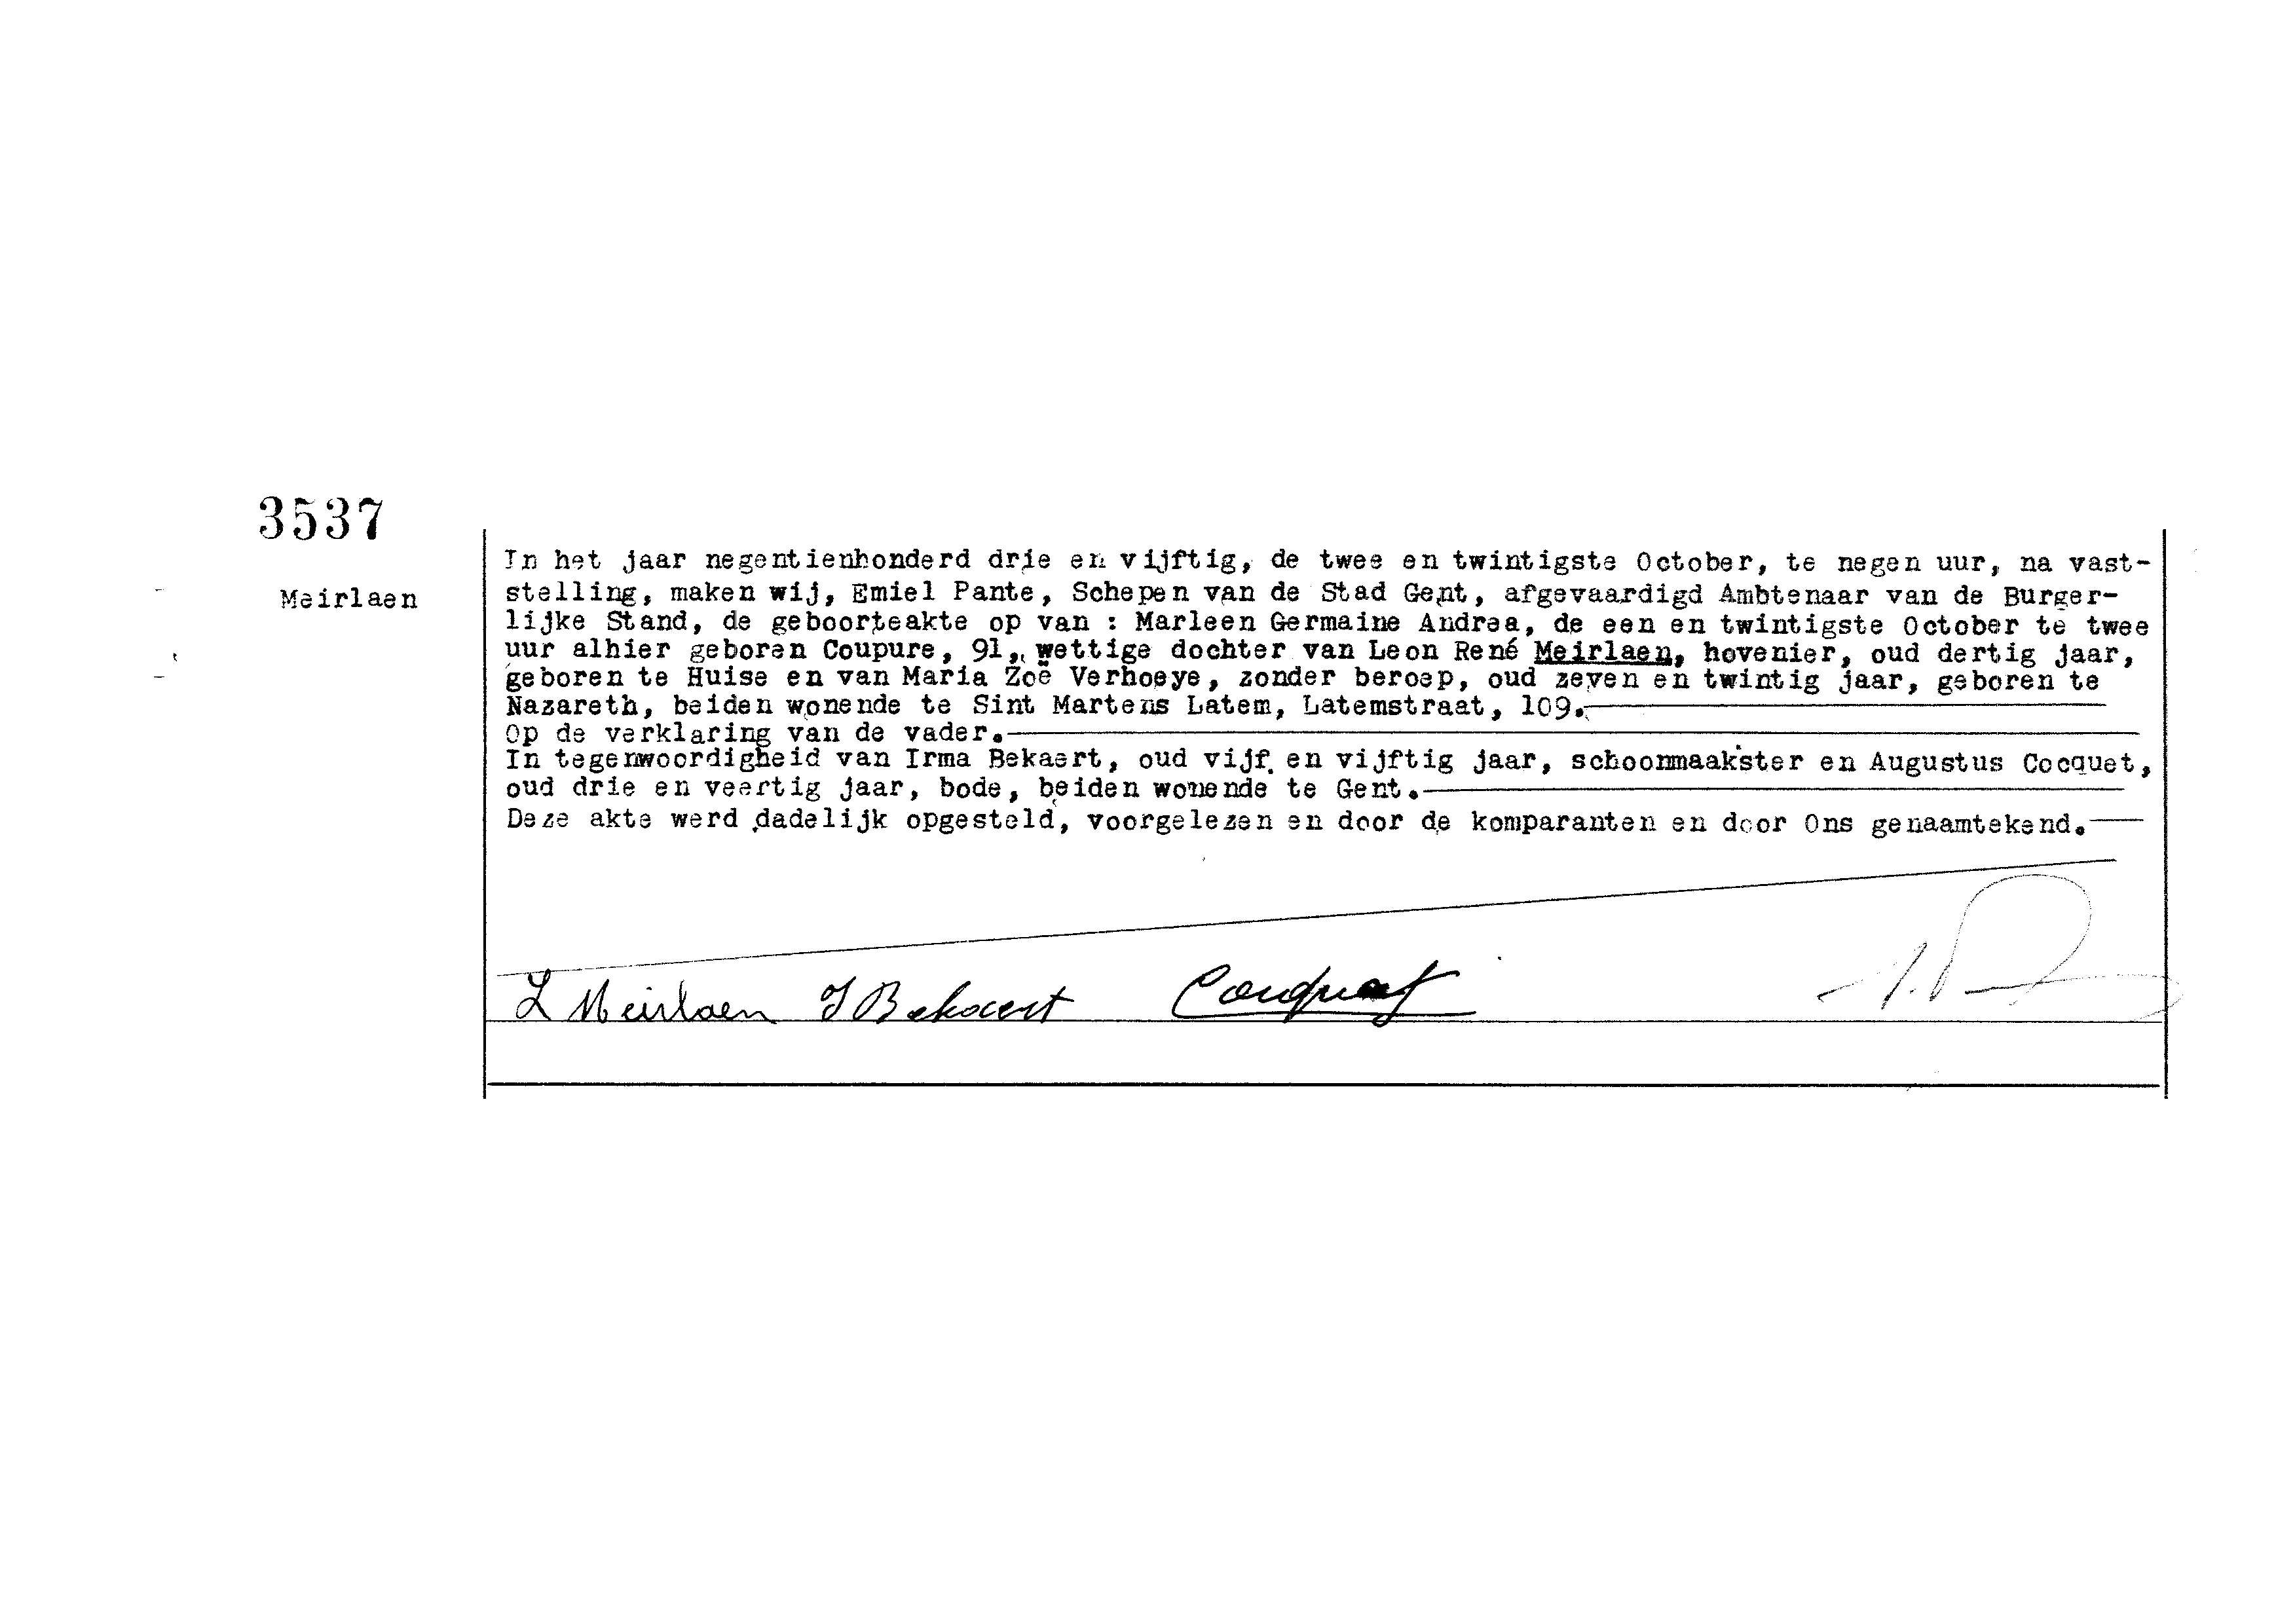 3537
Meirlaen
In het jaar negentienhonderd drie en vijftig, de twee en twintigste October, te negen uur, na vast-
stelling, maken wij, Emiel Pante, Schepen van de Stad Gent, afgevaardigd Ambtenaar van de Burger-
lijke Stand, de geboorteakte op van : Marleen Germaine Andrea, de een en twintigste October te twee
uur alhier geboren Coupure, 91, wettige dochter van Leon René Meirlaen, hovenier, oud dertig jaar,
geboren te Huise en van Maria Zoë Verhoeye, zonder beroep, oud zeven en twintig jaar, geboren te
Nazareth, beiden wonende te Sint Martens Latem, Latemstraat, 109.
Op de verklaring van de vader.
In tegenwoordigheid van Irma Bekaert, oud vijf en vijftig jaar, schoonmaakster en Augustus Cocquet,
oud drie en veertig jaar, bode, beiden wonende te Gent.
Deze akte werd dadelijk opgesteld, voorgelezen en door de komparanten en door Ons genaamtekend.
L Meirlaen I Bekaert